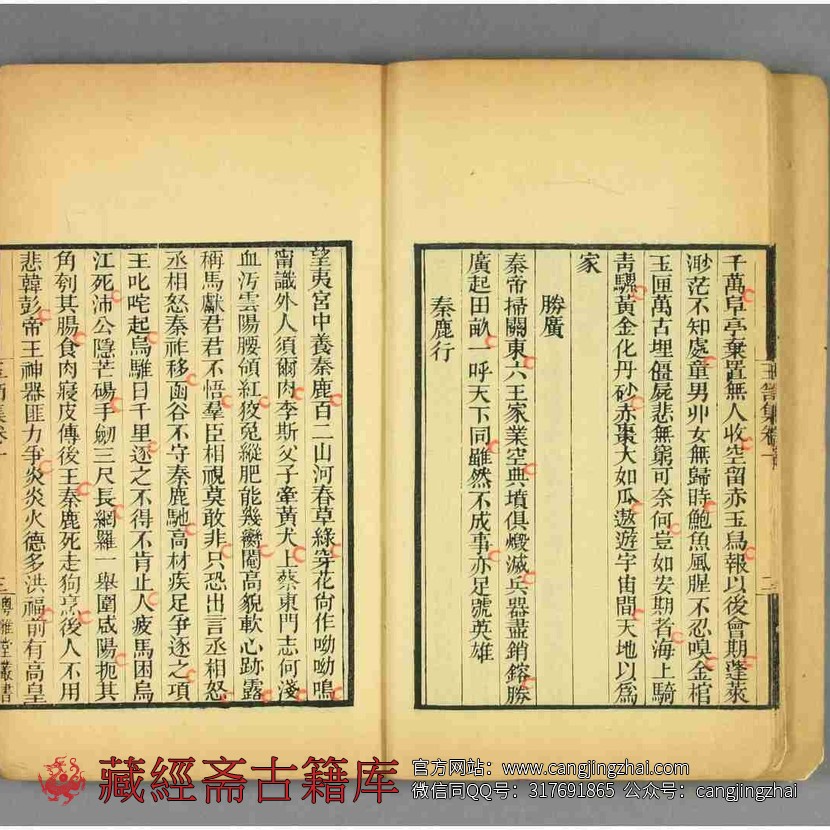 千萬阜亭棄置無人收空留赤玉舄報以後會期蓬萊
渺茫不知處童男丱女無歸時鮑魚風腥不忍嗅金棺
玉匣萬古埋僵屍悲無窮可奈何豈如安期者海上騎
青騾黃金化丹砂赤棗大如瓜遨遊宇宙間天地以爲
家
勝廣
秦帝掃關東六王家業空典墳俱煅滅兵器盡銷鎔勝
廣起田畝一呼天下同雖然不成事亦足號英雄
秦鹿行
望夷宮中養秦鹿百二山河春草綠穿花尙作呦呦鳴
甯識外人須爾肉李斯父子牽黃犬上蔡東門志何淺
血汚雲陽腰領紅狡兔縱肥能幾臠閹高貌軟心跡露
稱馬獻君君不悟羣臣相視莫敢非只恐出言丞相怒
丞相怒秦祚移函谷不守秦鹿馳高材疾足爭逐之項
王叱咤起烏騅日千里逐之不得不肯止人疲馬困烏
江死沛公隱芒碭手劒三尺長網羅一舉圍咸陽扼其
角刳其腸食肉寢皮傳後王秦鹿死走狗烹後人不用
悲韓彭帝王神器匪力爭炎炎火德多洪福前有高皇
二
三
粵雅堂叢書
藏經斋古籍库
官方网站：www.cangjingzhai.com
微信同QQ号：317691865 公众号：cangjingzhai